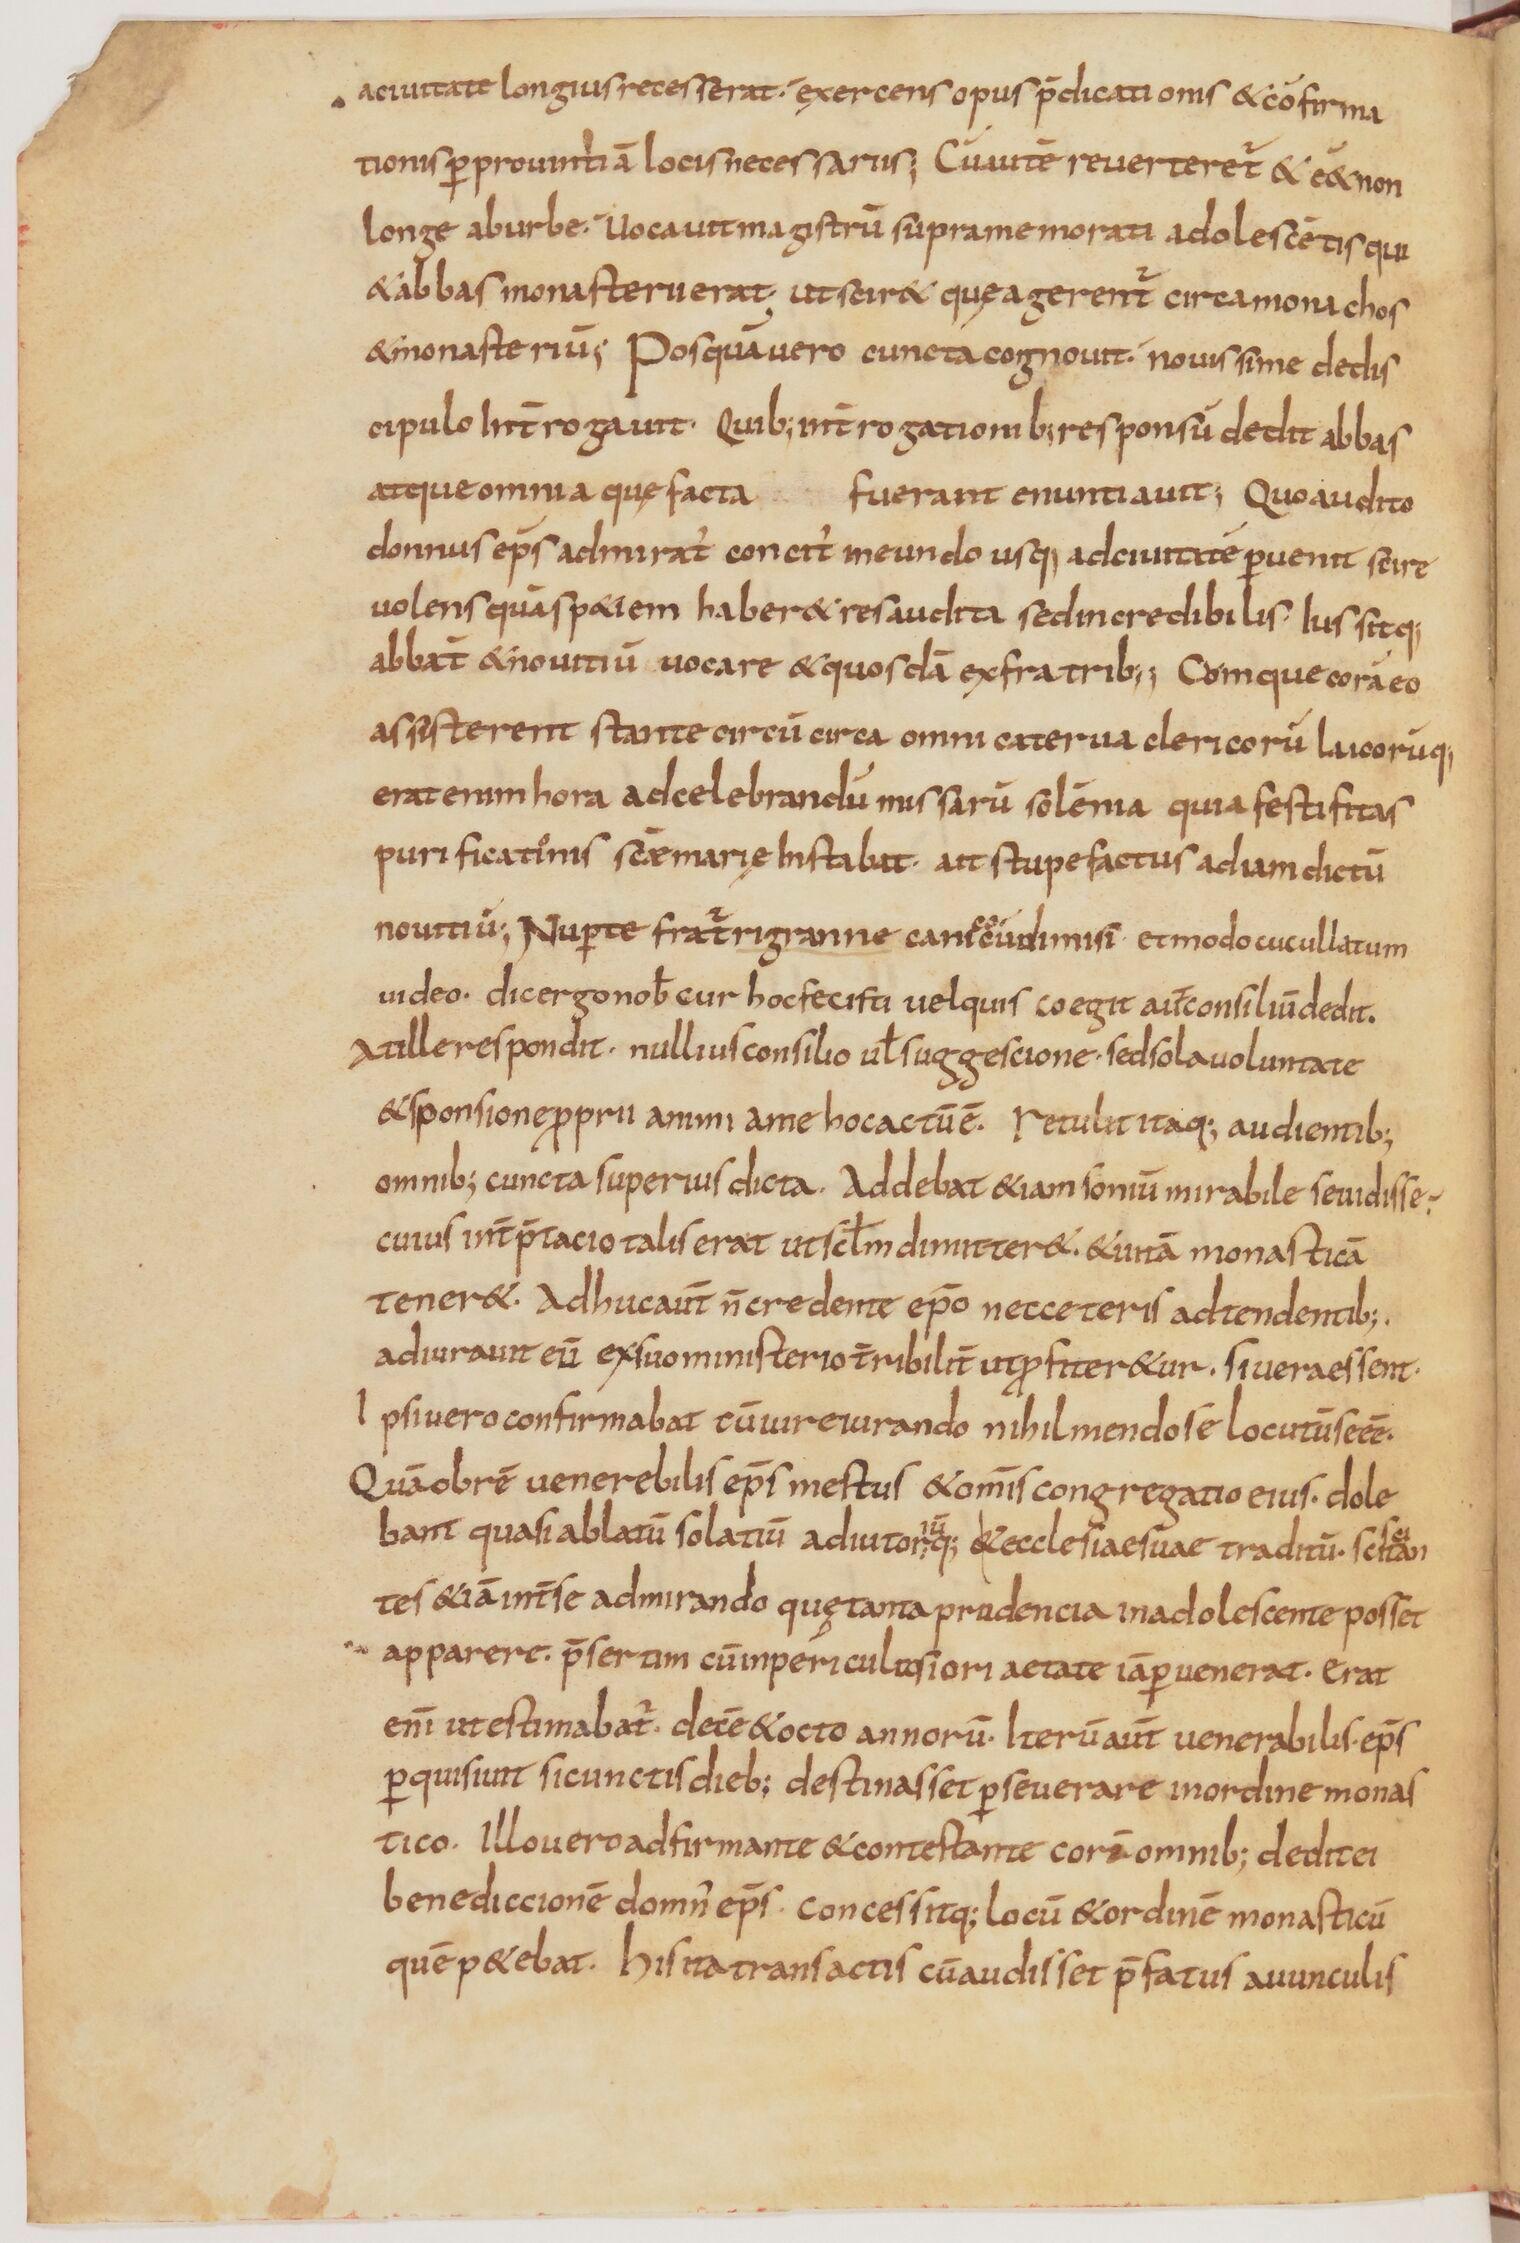 aciuitate longius recesserat. exercens opus p̄dicationis & cōfirma
tionis ꝑ prouintiā locis necessariis; Cū autē reuerteret᷑ & eēt non
longe ab urbe. Uocauit magistrū supramemorati adolescētis qui
& abbas monasterii erat; ut scir& quę agerent᷑ circa monachos
& monasteriū; Posquā uero cuncta cognouit. nouissime de dis
cipulo int̄rogauit. Quib; int̄rogationib; responsū dedit abbas
atque omnia quę facta fuerant enuntiauit; Quo audito
donnus ep̄s admirat᷑ concit᷑ in eundo usq; ad ciuitatē ꝑuenit scire
uolens quā sp&iem haber& res audita sed incredibilis. Iussitq;
abbat̄ & nouitiū uocare & quosdā ex fratrib;; Comque corā eo
assisterent stante circū circa omni caterua clericorū laicorūq;
erat enim hora ad celebrandū missarū solēnia quia festifitas
purificationis sc̄e marię Instabat. ait stupefactus ad iam dictū
nouitiū; Nuper te frat᷑ rigranne canicū dimisi. et modo cucullatum
uideo. dic ergo nob̄ cur hoc fecisti uel quis coegit aut̄ consiliū dedit.
At ille respondit. nullius consilio ul̄ suggescione. sed sola uoluntate
& sponsione ꝓprii animi a me hoc actū ē. Retulit itaq; audientib;
omnib; cuncta superius dicta. Addebat &iam soniū mirabile se uidisse.
cuius int̄p̄tacio talis erat ut scl̄m dimitter&. & uitā monasticā
tener&. Adhuc aut̄ n̄ credente ep̄o nec ceteris adtendentib;.
adiurauit eū ex suo ministerio t̄ribilit̄ ut ꝓfiter&ur. si uera essent.
Ipsi uero confirmabat cū iureiurando nihil mendose locutū se eē.
Quāobrē uenerebilis ep̄s mestus & om̄is congregatio eius. dole
bant quasi ablatū solatiū adiutoriūq; & ecclesiae suae traditū. scisci tan
tes &iā int̄ se admirando quę tanta prudencia in adolescente posset
apparere. p̄sertim cū in periculosiori aetate iā ꝑuenerat. Erat
eni̅ ut estimabat᷑. decē & octo annorū. Iterū aut̄ uenerabilis. ep̄s
ꝑquisiuit si cunctis dieb; destinasset ꝑseuerare in ordine monas
tico. Illo uero adfirmante & contestante corā omnib; dedit ei
benediccionē domn̄ ep̄s. Concessitq; locū & ordinē monasticū
quē p&ebat. His ita transactis cū audisset p̄fatus auunculis